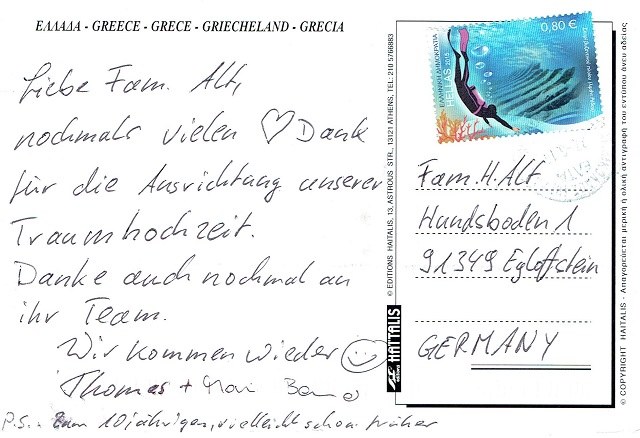 ΕΛΛΑΔΑ - GREECE - GRECE - GRIECHELAND - GRECIA
Liebe Fam. Alt,
nochmals vielen ♡ Dank
für die Ausrichtung unserer
Traumhochzeit.
Danke auch nochmal an
ihr Team.
Wir kommen wieder ☺
Thomas +
P.S.: Zum 10jährigen, vielleicht schon früher
© EDITIONS HAITALIS, 13, ASTROUS STR., 13121 ATHENS, TEL: 210 5766883
HAITALIS
ΕΛΛΗΝΙΚΗ ΔΗΜΟΚΡΑΤΙΑ
HELLAS
0,80 €
Fam. H. Alt
Hundsboden 1
91349 Egloffstein
GERMANY
© COPYRIGHT HAITALIS - Απαγορεύεται μερική ή ολική αντιγραφή του εντύπου άνευ αδείας